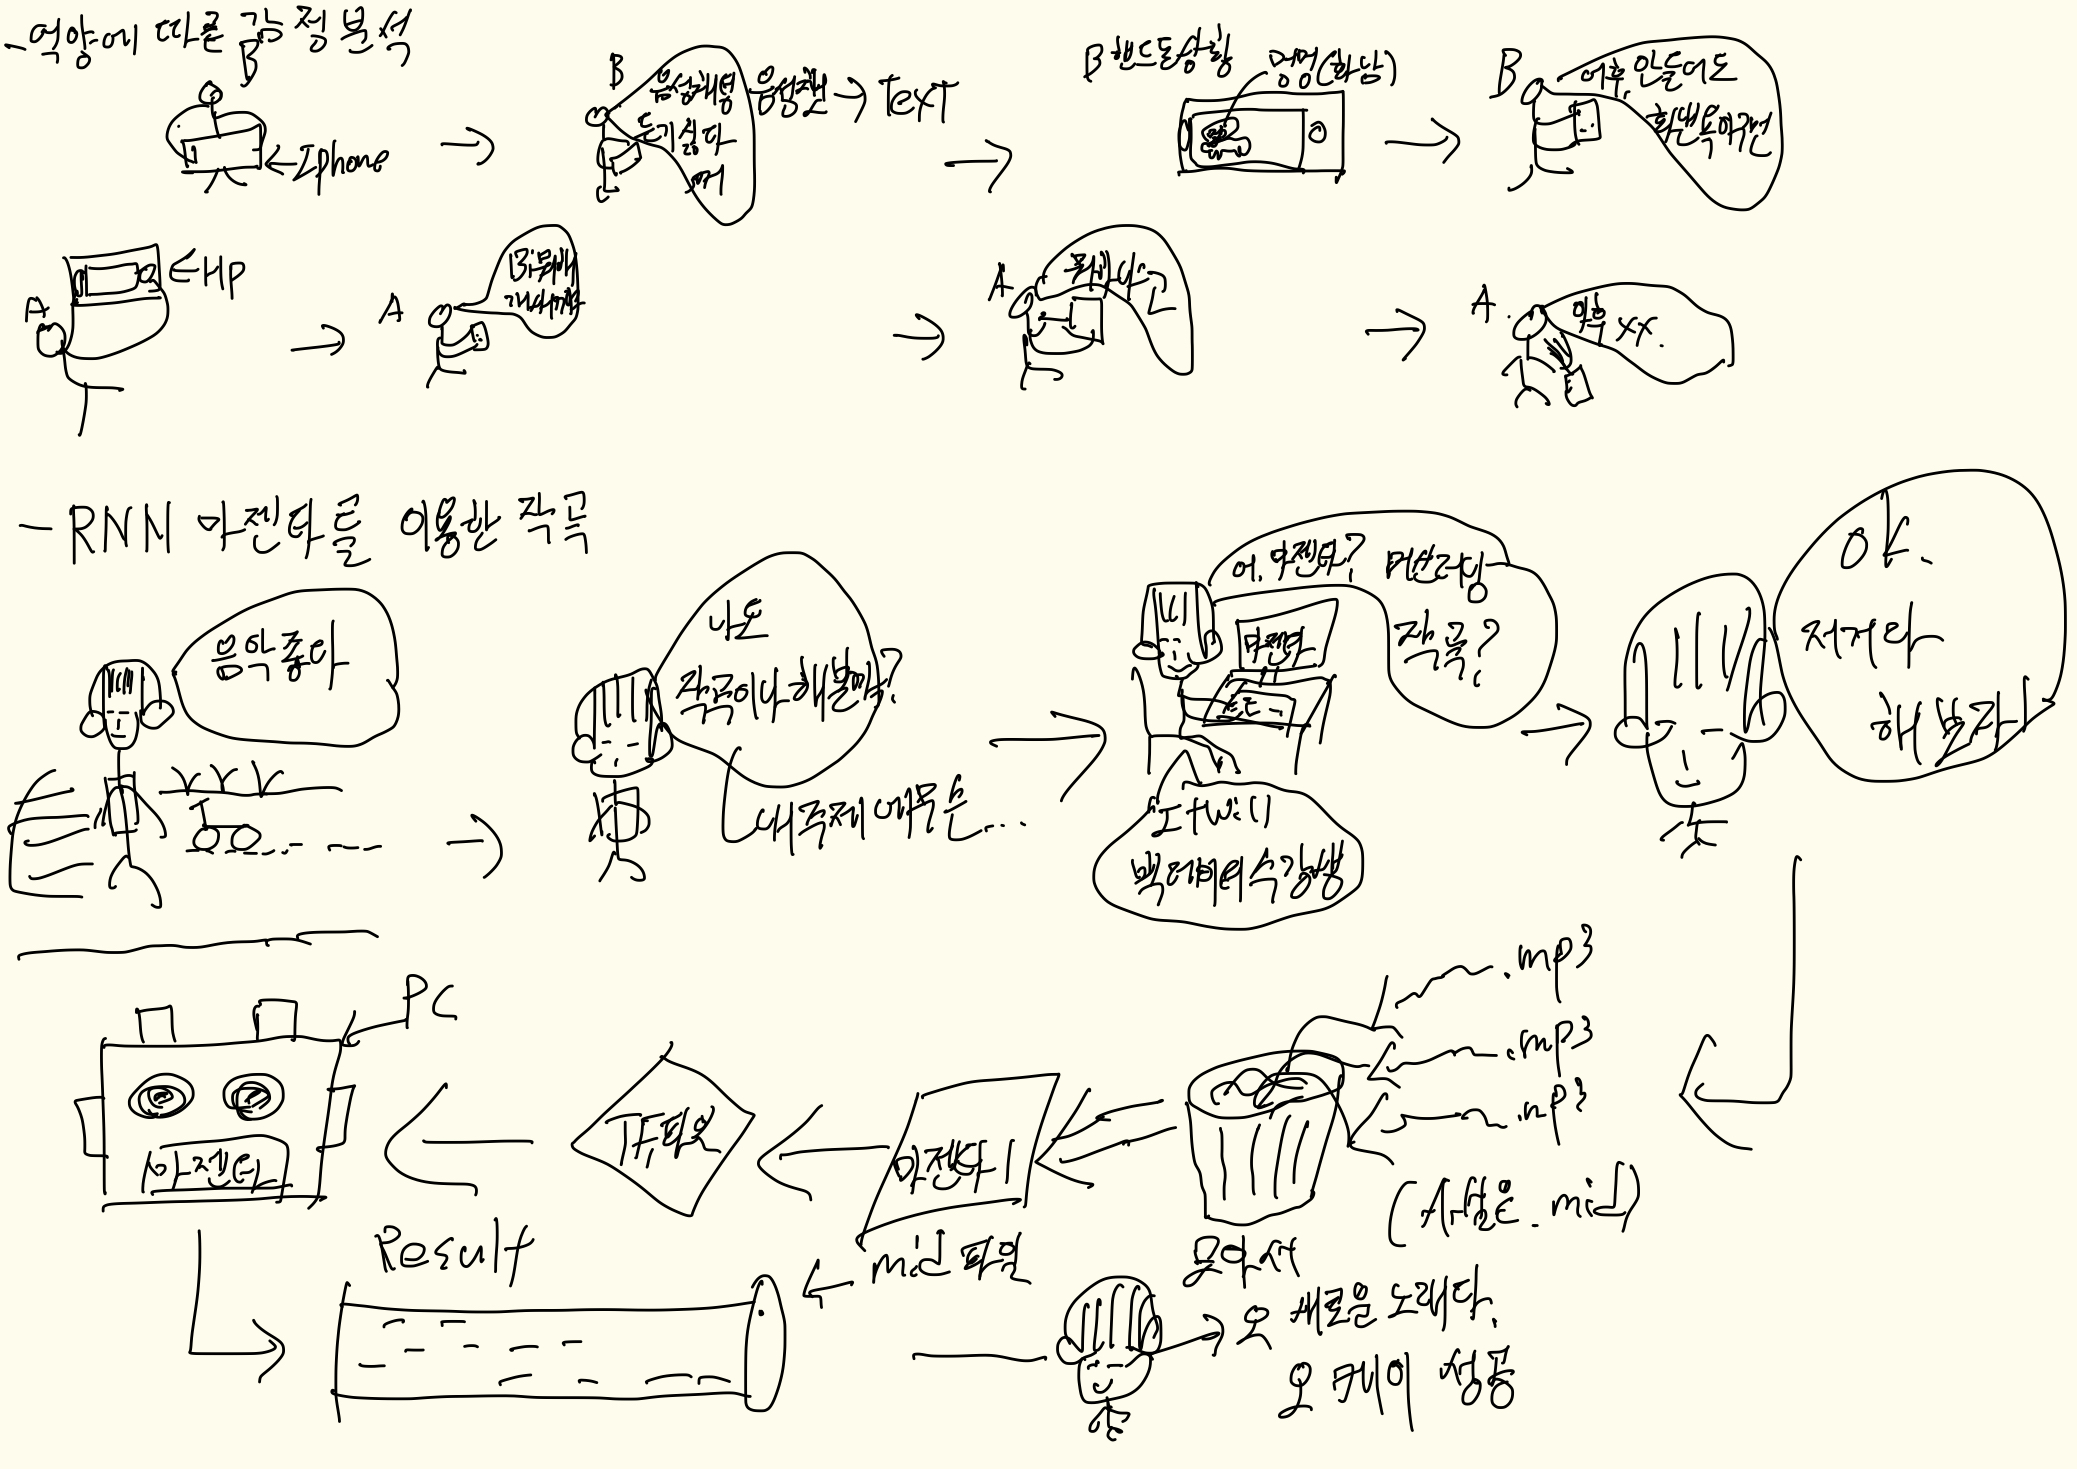 - 억양에 따른 감정분석
B
←Iphone
B
음성채팅
듣기싫다
꺼
음성챗→Text
B 핸드폰상황
멍멍(화남)
B
어휴, 안들어도
←HP
A
A
A
A
XX.
- RNN 마젠타를 이용한 작곡
음악좋다
나도
작곡이나 해볼까?
내 주제에 무슨...
어, 마젠타? 머신러닝
작곡?
마젠타
It will
빅데이터 수강생
OK.
저거다
해보자!
.mp3
.mp3
.mp3
(사실은 .mid)
모아서
마젠타!
mid 파일
TF파일
PC
마젠타
Result
오 새로운 노래다.
오케이 성공